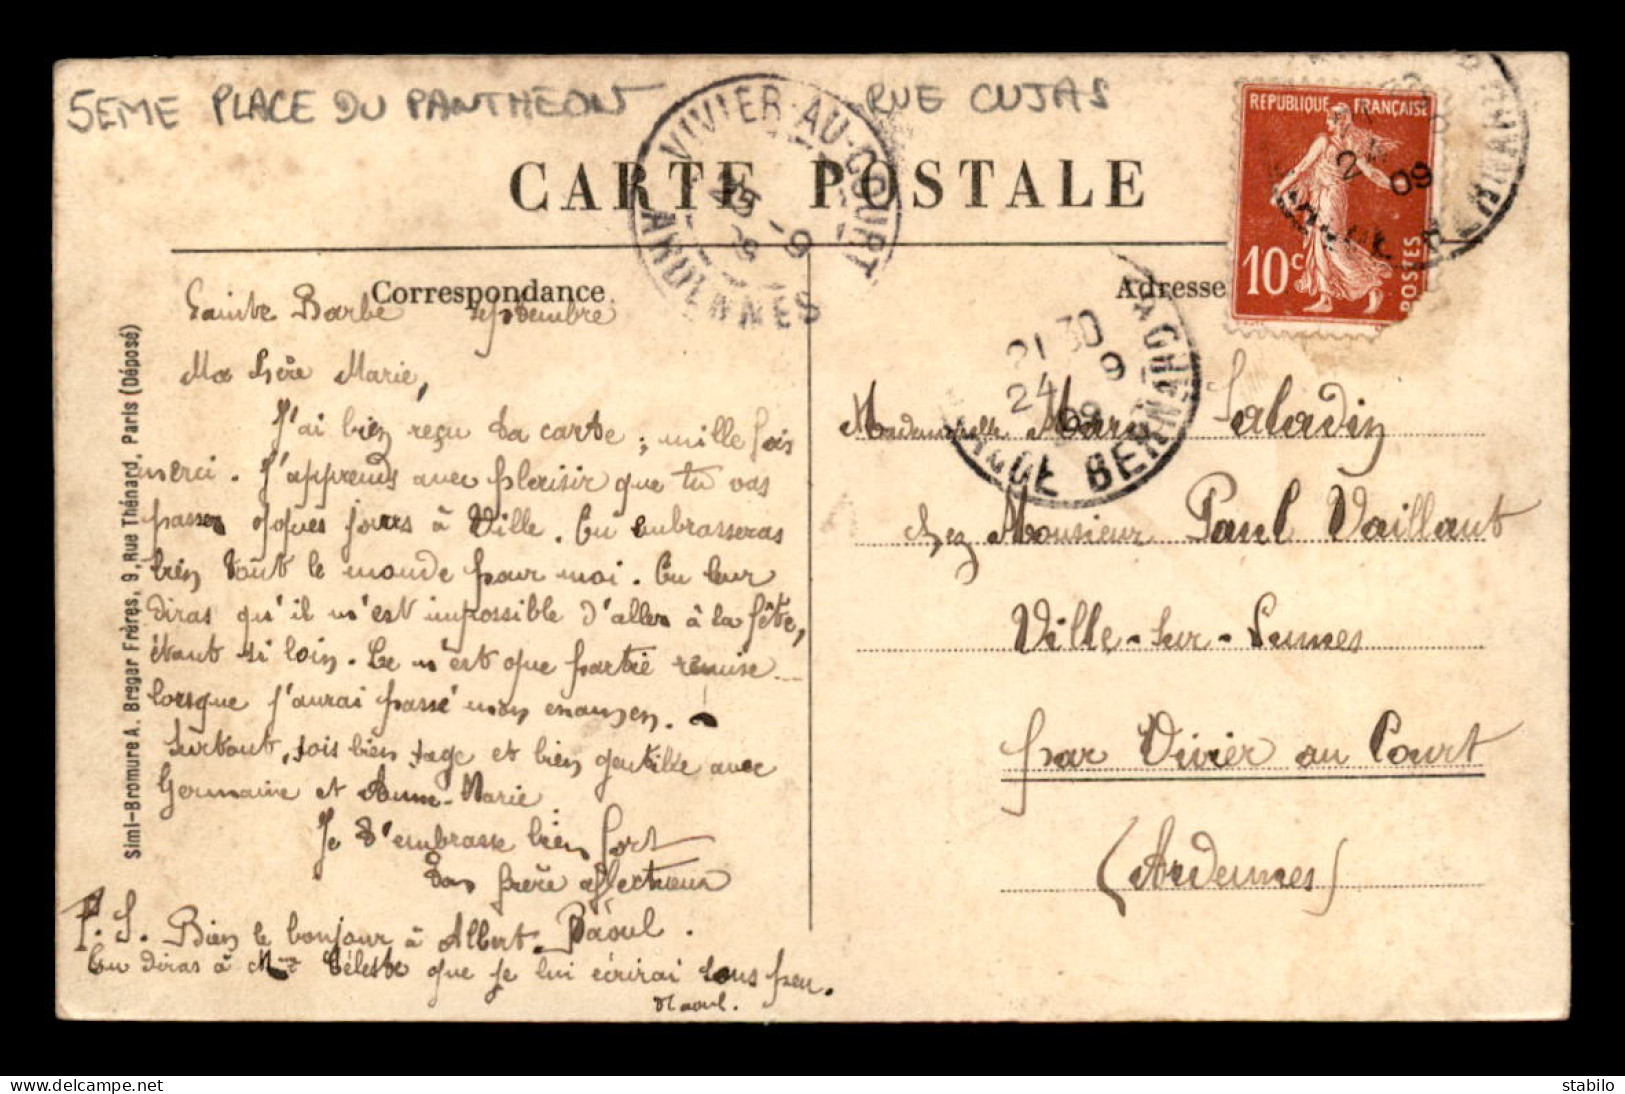 5EME PLACE DU PANTHEON RUE CUJAS
VIVIER-AU-COURT
ARDENNES
25 - 9
09
REPUBLIQUE FRANÇAISE
10c POSTES
2 09
CARTE POSTALE
Correspondance
Sainte Barbe septembre
Ma chère Marie,
J'ai bien reçu ta carte ; mille fois
merci. J'apprends avec plaisir que tu vas
passer qques jours à Ville. Tu embrasseras
bien tout le monde pour moi. Tu leur
diras qu'il m'est impossible d'aller à la fête,
étant si loin. Ce n'est que partie remise
lorsque j'aurai passé mon examen.
Surtout, sois bien sage et bien gentille avec
Germaine et Anne-Marie
Je t'embrasse bien fort
Ton frère affectueux
Raoul.
P.S. Bien le bonjour à Albert.
Tu diras à Me Céleste que je lui écrirai sous peu.
Raoul.
Adresse
21 30
24 9
09
Mademoiselle Marie Saladin
chez Monsieur Paul Vaillant
Ville-sur-Lumes
par Vivier au Court
(Ardennes)
Simi-Bromure A. Breger Frères, 9, Rue Thénard, Paris (Déposé)
stabilo